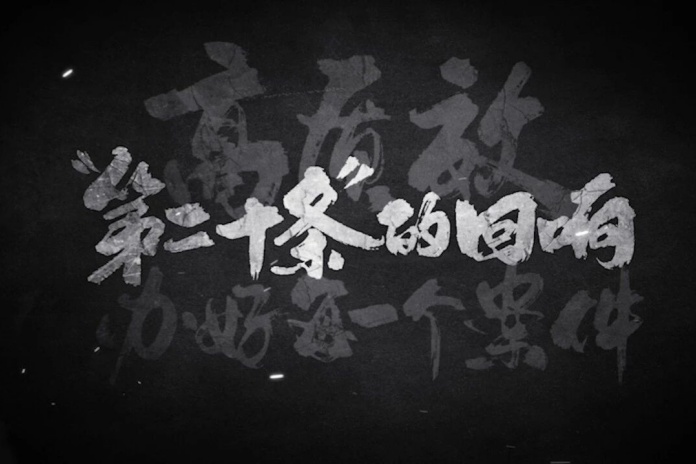 高质效
“第二十条”的回响
办好每一个案件